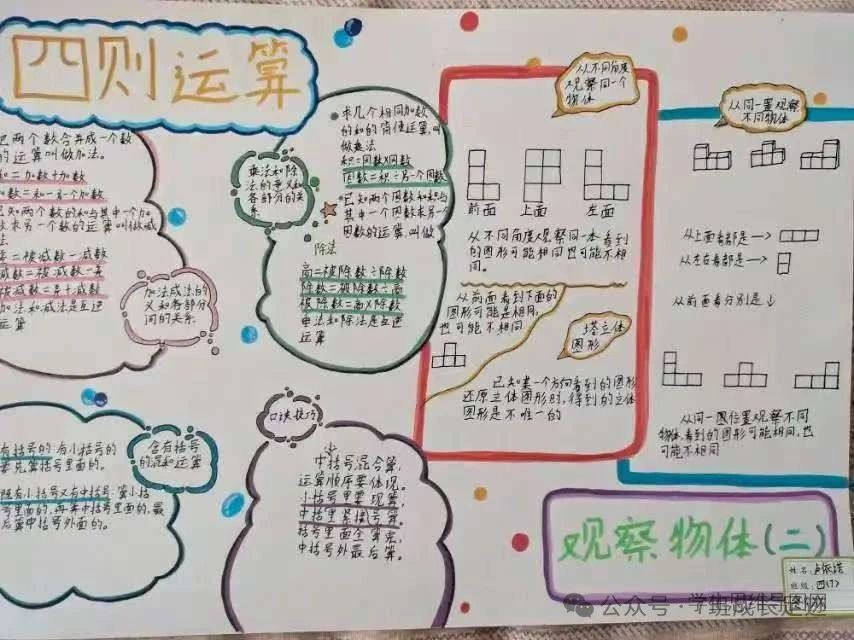 四则运算
把两个数合并成一个数
的运算叫做加法。
和=加数+加数
加数=和-另一个加数
已知两个数的和与其中一个加
数求另一个数的运算叫做减
法
差=被减数-减数
减数=被减数-差
被减数=差+减数
加法和减法是互逆
运算
加法成法的
义和各部分
间的关系
求几个相同加数
的和的简便运算,叫
做乘法
积=因数×因数
因数=积÷另一个因数
已知两个因数和积与
其中一个因数求另一
因数的运算,叫做
除法
乘法和除
法的意义和
各部分的关
系
商=被除数÷除数
除数=被除数÷商
被除数=商×除数
乘法和除法是互逆
运算
有括号的:有小括号的
要先算括号里面的。
既有小括号又有中括号:算小括
号里面的,再算中括号里面的,最
后算中括号外面的。
含有括号
的混和运算
口诀技巧
中括号,混合算,
运算顺序要体现。
小括号里要现算,
中括里紧接号算。
括号里面全算完,
中括号外最后算。
从不同角度
观察同一个
物体
前面 上面 左面
从不同角度观察同一本看到
的图形可能相同也可能不相
同。
从前面看到下面的
图形可能是相同,
也可能不相同
塔立体
图形
已知某一个方向看到的图形
还原立体图形时,得到的立体
图形是不唯一的
从同一置观察
不同物体
从上面看都是→
从左右看都是→
从前面看分别是↓
从同一图位置观察不同
物体,看到的图形可能相同,也
可能不相同
观察物体(二)
姓名:卢依诺
班级:四(7)
公众号·